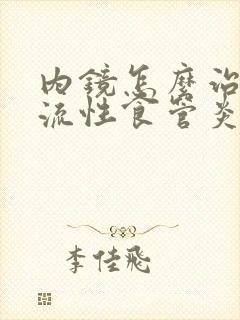 内镜怎麽治
流性食管炎
李佳飛